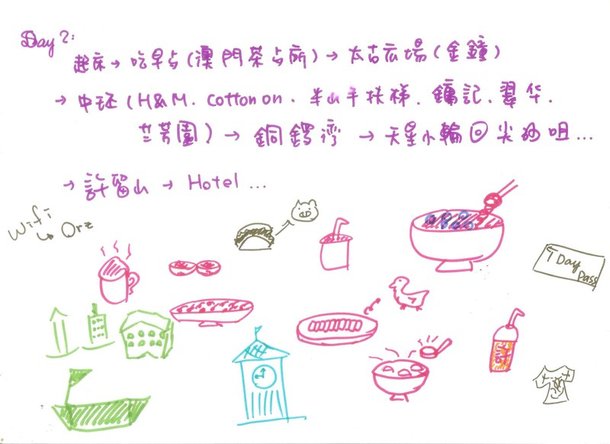 Day 2:
起床→吃早占(澳門茶占所)→太古広場(金鐘)
→中环(H&M. cotton on. 半山手扶梯. 鏞記. 翠华.
兰芳園)→銅鑼灣→天星小輪回尖沙咀...
→許留山→Hotel ...
Wifi
→Orz
7 Day
Pass
許